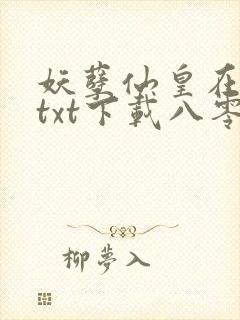 妖孽仙皇在
txt下载八零
柳梦入